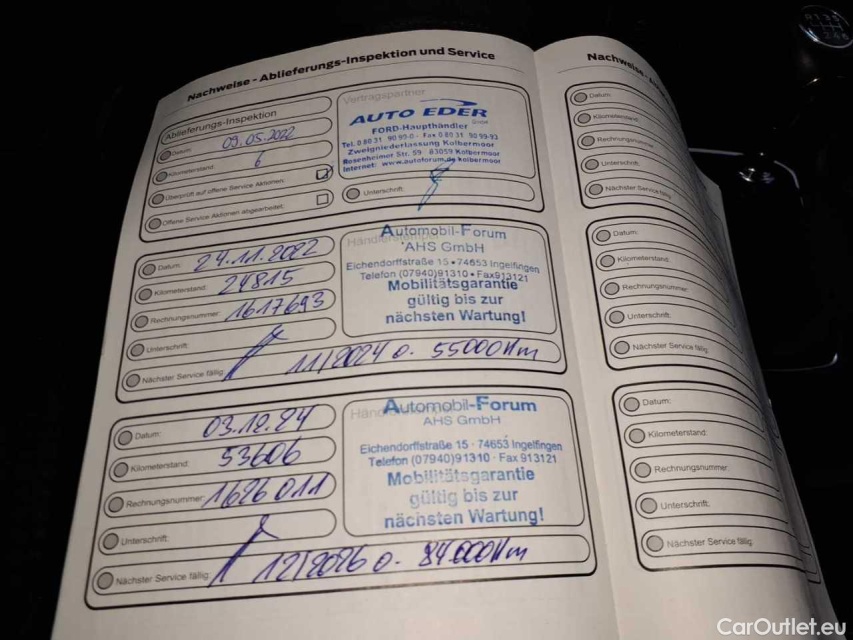 Nachweise - Ablieferungs-Inspektion und Service
Ablieferungs-Inspektion
Datum: 09.05.2022
Kilometerstand: 6
Überprüft auf offene Service Aktionen:
Offene Service Aktionen abgearbeitet:
Vertragspartner
AUTO EDER
GmbH
FORD-Haupthändler
Tel. 0 80 31 90 99-0 · Fax 0 80 31 90 99-93
Zweigniederlassung Kolbermoor
Rosenheimer Str. 59 83059 Kolbermoor
Internet: www.autoforum.de kolbermoor
Unterschrift:
Datum: 24.11.2022
Kilometerstand: 24815
Rechnungsnummer: 1617693
Unterschrift:
Nächster Service fällig: 11/2024 o. 55000 Km
Händlerstempel
Automobil-Forum
AHS GmbH
Eichendorffstraße 15 • 74653 Ingelfingen
Telefon (07940) 91310 • Fax 913121
Mobilitätsgarantie
gültig bis zur
nächsten Wartung!
Datum: 03.12.24
Kilometerstand: 53606
Rechnungsnummer: 1626011
Unterschrift:
Nächster Service fällig: 12/2026 o. 84000 Km
Automobil-Forum
AHS GmbH
Eichendorffstraße 15 · 74653 Ingelfingen
Telefon (07940) 91310 · Fax 913121
Mobilitätsgarantie
gültig bis zur
nächsten Wartung!
Nachweise - A
Datum:
Kilometerstand:
Rechnungsnummer
Unterschrift:
Nächster Service fällig
Datum:
Kilometerstand:
Rechnungsnummer:
Unterschrift:
Nächster Service fällig
Datum:
Kilometerstand:
Rechnungsnummer
Unterschrift:
Nächster Service fällig:
CarOutlet.eu